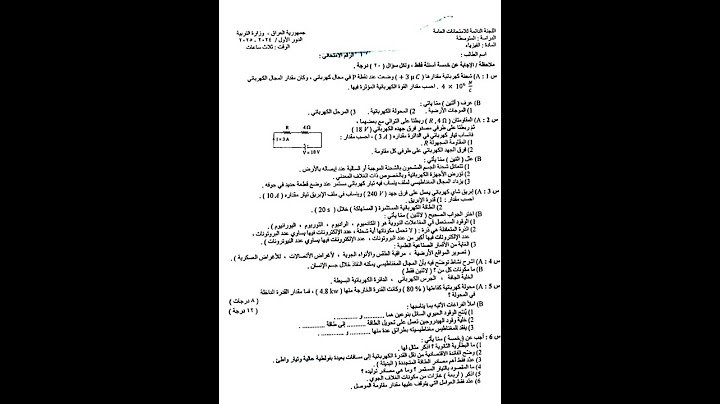 جمهورية العراق - وزارة التربية
الدور الأول / ٢٠٢٤ - ٢٠٢٥
الوقت : ثلاث ساعات
اللجنة الدائمة للامتحانات العامة
الدراسة : المتوسطة
المادة : الفيزياء
اسم الطالب : الرقم الامتحاني :
ملاحظة / الإجابة عن خمسة أسئلة فقط ، ولكل سؤال ( ٢٠ ) درجة .
س 1 : A) شحنة كهربائية مقدارها ( 3 μC + ) وضعت عند نقطة P في مجال كهربائي ، وكان مقدار المجال الكهربائي
. احسب مقدار القوة الكهربائية المؤثرة فيها .
B) عرف ( اثنين ) مما يأتي :
1) الموجات الأرضية . 2) المحولة الكهربائية . 3) المرحل الكهربائي .
س 2 : A) المقاومتان ( R , 4 Ω ) ربطتا على التوالي مع بعضهما ،
ثم ربطتا على طرفي مصدر فرق جهده الكهربائي ( 18 V )
فانساب تيار كهربائي في الدائرة مقداره ( 3 A ) ، احسب مقدار :
1) المقاومة المجهولة R .
2) فرق الجهد الكهربائي على طرفي كل مقاومة .
R 4 Ω
I = 3 A
V = 18 V
B) علل ( اثنين ) مما يأتي :
1) تتعادل شحنة الجسم المشحون بالشحنة الموجبة أو السالبة عند ايصاله بالأرض .
2) تورض الأجهزة الكهربائية وبالخصوص ذات الغلاف المعدني .
3) يزداد المجال المغناطيسي لملف ينساب فيه تيار كهربائي مستمر عند وضع قطعة حديد في جوفه .
س 3 : A) ابريق شاي كهربائي يعمل على فرق جهد ( 240 V ) وينساب في ملف الإبريق تيار مقداره ( 10 A ) ،
احسب مقدار : 1) قدرة الإبريق .
2) الطاقة الكهربائية المستثمرة ( المستهلكة ) خلال ( 20 s ) .
B) اختر الجواب الصحيح ( لاثنين ) مما يأتي :
1) الوقود المستعمل في المفاعلات النووية هو ( الكادميوم ، الراديوم ، الثوريوم ، اليورانيوم ) .
2) الذرة المتعادلة هي ذرة : ( لا تحمل مكوناتها أية شحنة ، عدد الإلكترونات فيها يساوي عدد البروتونات ،
عدد الإلكترونات فيها أكبر من عدد البروتونات ، عدد الإلكترونات فيها يساوي عدد النيوترونات ) .
3) الغاية من الأقمار الصناعية العلمية :
( تصوير المواقع الأرضية ، مراقبة الطقس والأنواء الجوية ، لأغراض الاتصالات ، للأغراض العسكرية ) .
س 4 : A) اشرح نشاط توضح فيه بأن المجال المغناطيسي يمكنه النفاذ خلال جسم الإنسان .
B) ما مكونات كل من ؟ ( لاثنين فقط )
الخلية الجافة ، الجرس الكهربائي ، الدائرة الكهربائية البسيطة .
س 5 : A) محولة كهربائية كفاءتها ( 80 % ) وكانت القدرة الخارجة منها ( 4.8 kw ) ، فما مقدار القدرة الداخلة
في المحولة ؟ ( ٨ درجات )
B) املأ الفراغات الآتية بما يناسبها : ( ١٢ درجة )
1) ينتج الوقود الحيوي السائل بنوعين هما .......... و ..........
2) خلية وقود الهيدروجين تعمل على تحويل الطاقة .......... إلى طاقة ..........
3) يفقد المغناطيس مغناطيسيته بطرائق عدة منها .......... و ..........
س 6 : أجب عن ( خمسة ) مما يأتي :
1) ما البطارية الثانوية ؟ اذكر مثال لها .
2) وضح الفائدة الاقتصادية من نقل القدرة الكهربائية إلى مسافات بعيدة بفولطية عالية وتيار واطئ .
3) عدد فقط أهم مصادر الطاقة المتجددة ( البديلة ) .
4) ما المقصود بالتيار المستمر ؟ وما هي مصادر توليده ؟
5) اذكر ( أربعة ) غازات من مكونات الغلاف الجوي .
6) عدد فقط العوامل التي يتوقف عليها مقدار مقاومة الموصل .